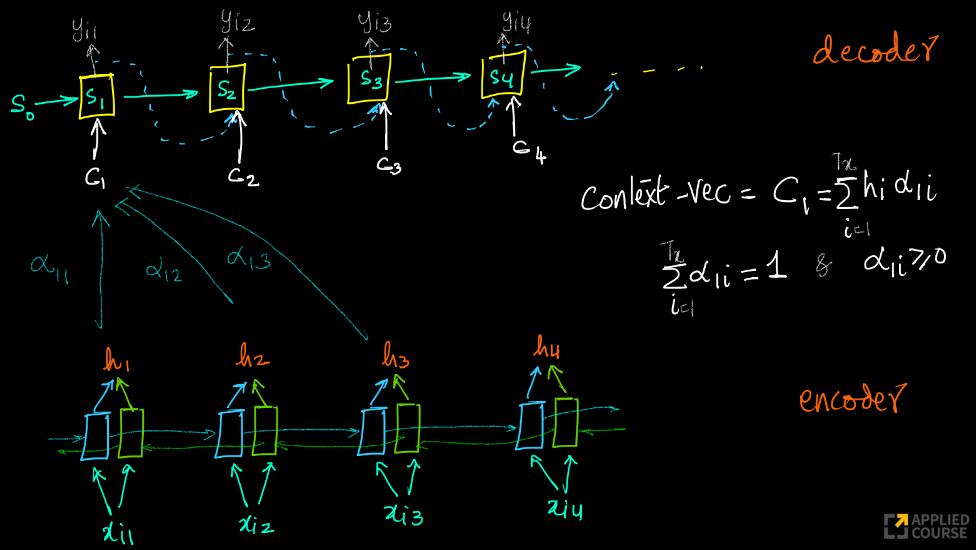 yi1 yi2 yi3 yi4
decoder
S0 S1 S2 S3 S4
C1 C2 C3 C4
Context-vec = C1 = Σ_{i=1}^{Tx} hi α1i
Σ_{i=1}^{Tx} α1i = 1 & α1i ≥ 0
α11 α12 α13
h1 h2 h3 h4
encoder
xi1 xi2 xi3 xi4
APPLIED
COURSE